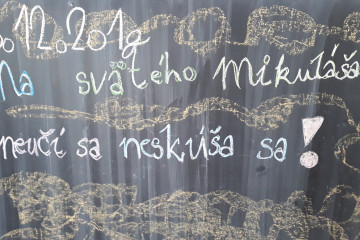 12.2019
Na svätého Mikuláša
neučí sa neskúša sa!